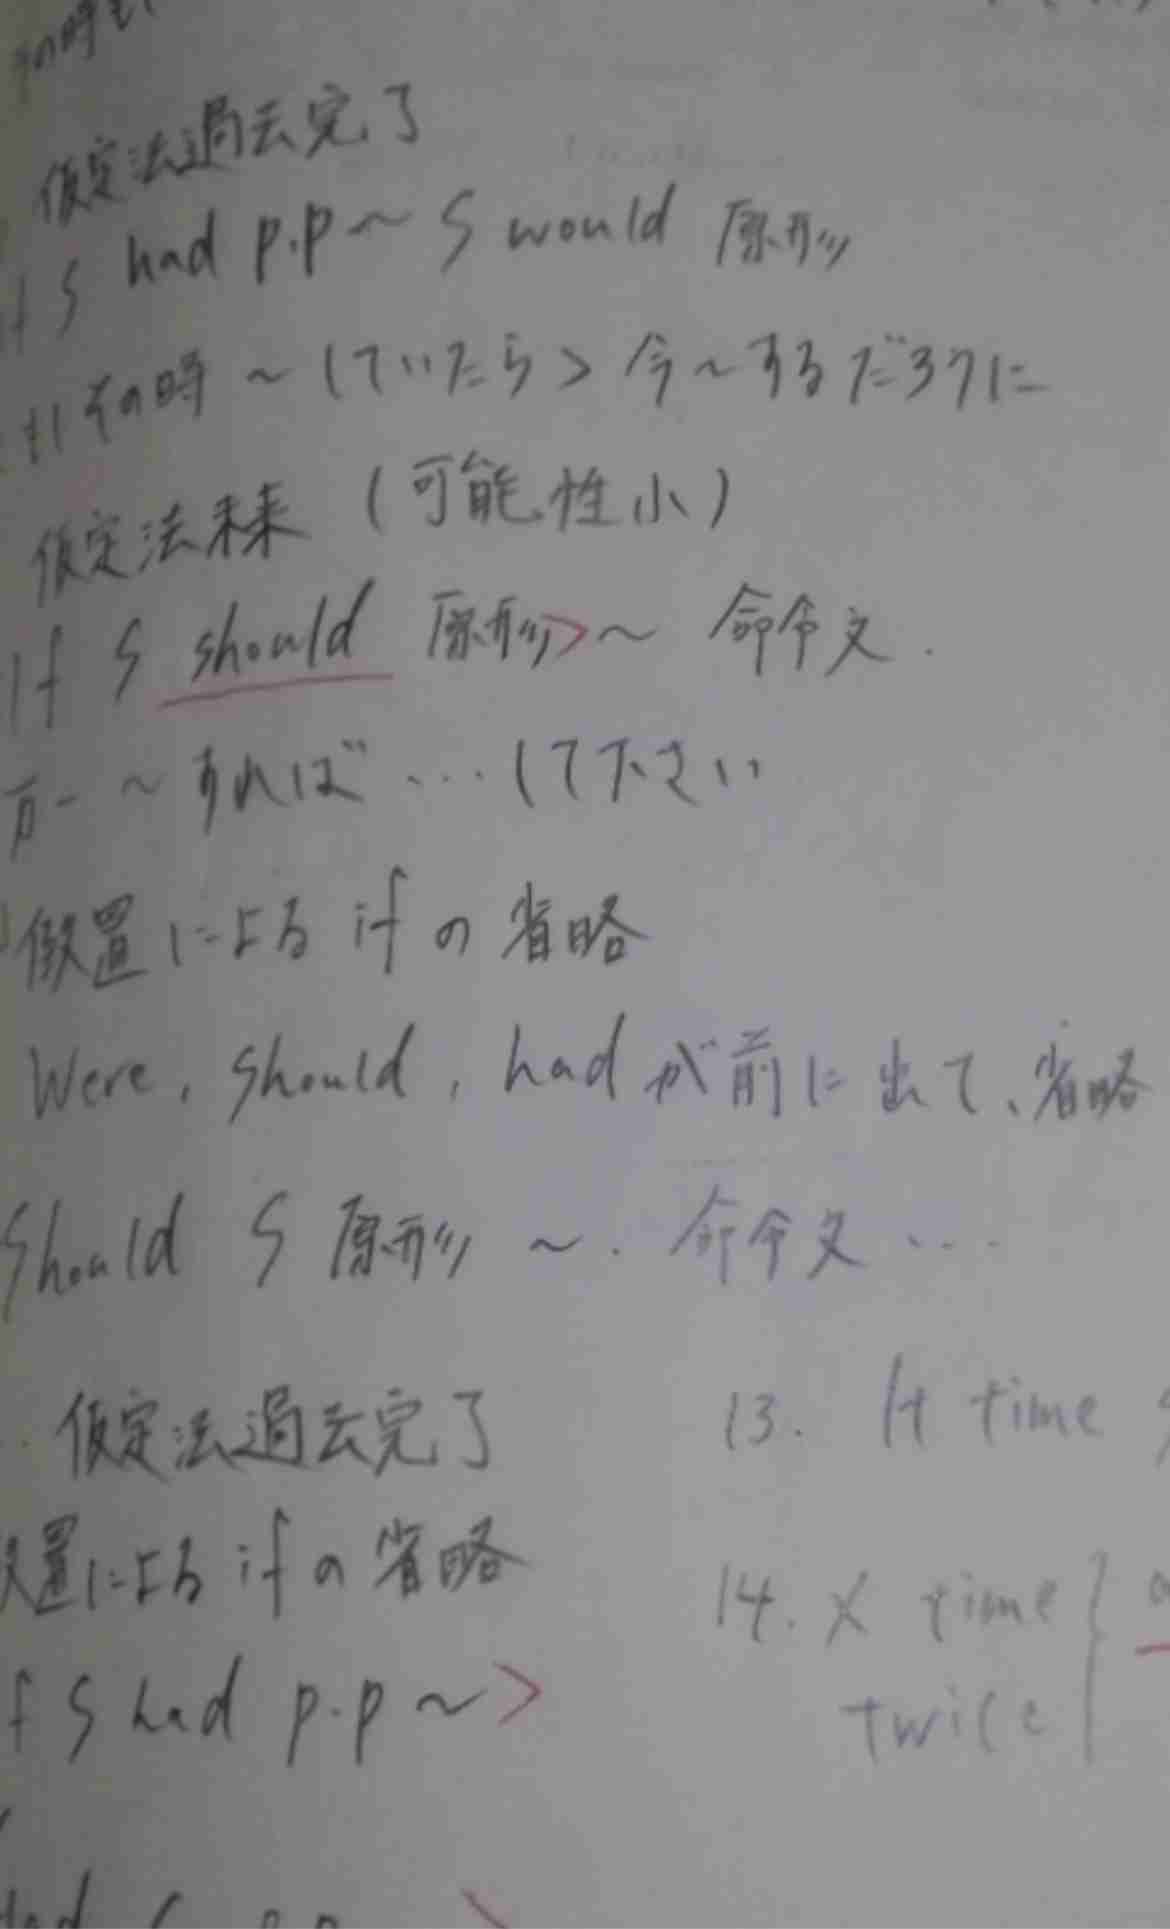 その時も
仮定法過去完了
If S had p.p ~ S would 原形
もしその時 ~ していたら > 今 ~ するだろうに
仮定法未来 (可能性小)
If S should 原形 > ~ 命令文.
万一 ~ すれば … して下さい
倒置による if の省略
Were, should, had が前に出て、省略
Should S 原形 ~. 命令文 …
仮定法過去完了
置による if の省略
If S had p.p ~ >
Had S p.p >
13. It time
14. X time
twice